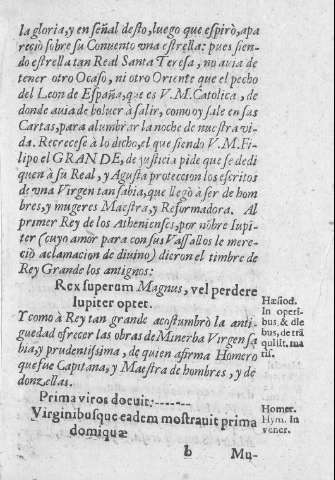 la gloria, y en señal desto, luego que espirò, apa
reciò sobre su Conuento vna estrella: pues sien-
do estrella tan Real Santa Teresa, no auia de
tener otro Ocaso, ni otro Oriente que el pecho
del Leon de España, que es V.M. Catolica, de
donde auia de boluer à salir, como y sale en sus
Cartas, para alumbrar la noche de nuestra vi-
da. Recrecese à lo dicho, el que siendo V.M. Fi-
lipo el GRANDE, de justicia pide que se dedi
quen à su Real, y Augusta proteccion los escritos
de vna Virgen tan sabia, que llegò à ser de hom
bres, y mugeres Maestra, y Reformadora. Al
primer Rey de los Athenienses, por nõbre Iupi-
ter (cuyo amor para con sus Vassallos le mere-
ciò aclamacion de diuino) dieron el timbre de
Rey Grande los antignos:
Rex superum Magnus, vel perdere
Iupiter optet.
Hæsiod.
In operi-
bus, & die
bus, de trã
quilit. ma
tis.
Y como à Rey tan grande acostumbrò la anti-
guedad ofrecer las obras de Minerba Virgen sa
bia, y prudentissima, de quien afirma Homero
que fue Capitana, y Maestra de hombres, y de
donzellas.
Prima viros docuit:-------
Virginibusque eadem mostrauit prima
domiquæ
Homer.
Hym. In
vener.
b
Mu-